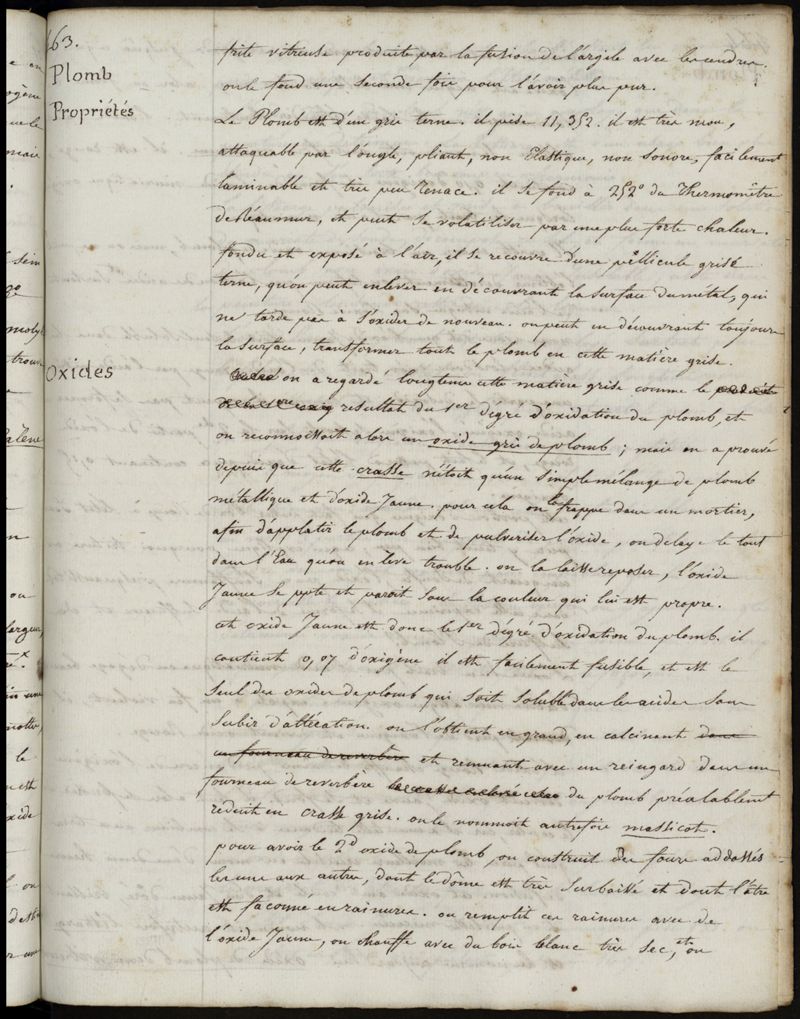 163.
Plomb
Propriétés
Oxides
fritte vitreuse produite par la fusion de l'argile avec les cendres.
on le fond une seconde fois pour l'avoir plus pur.
Le Plomb est d'un gris terne. il pèse 11,352. il est très mou,
attaquable par l'ongle, pliant, non Elastique, non sonore, facilement
laminable et très peu tenace. il se fond à 252° du Thermomètre
de Réaumur, et peut se volatiliser par une plus forte chaleur.
fondu et exposé à l'air, il se recouvre d'une péllicule grise
terne, qu'on peut enlever en découvrant la surface du métal, qui
ne tarde pas à s'oxider de nouveau. on peut en découvrant toujours
la surface, transformer tout le plomb en cette matière grise.
on a regardé longtems cette matière grise comme le produit
resultat du 1er dégré d'oxidation du plomb, et
on reconnoissoit alors un oxide gris de plomb ; mais on a prouvé
depuis que cette crasse n'étoit qu'un simple mélange de plomb
métallique et d'oxide Jaune. pour cela on la frappe dans un mortier,
afin d'applatir le plomb et de pulveriser l'oxide, on delaye le tout
dans l'Eau qu'on enlève trouble. on la laisse reposer, l'oxide
Jaune se ppte et paroit sous la couleur qui lui est propre.
cet oxide Jaune est donc le 1er dégré d'oxidation du plomb. il
contient 0,07 d'oxigène il est facilement fusible, et est le
seul des oxides de plomb qui soit soluble dans les acides sans
subir d'altération. on l'obtient en grand, en calcinant dans
un fourneau de reverbère et remuant avec un reingard dans un
fourneau de reverbère du plomb préalablement
reduit en crasse grise. on le nommoit autrefois massicot.
pour avoir le 2d oxide de plomb, on construit des fours addossés
les uns aux autres, dont le dôme est très surbaissé et dont l'âtre
est façonné en rainures. on remplit ces rainures avec de
l'oxide Jaune, on chauffe avec du bois blanc très sec, et on